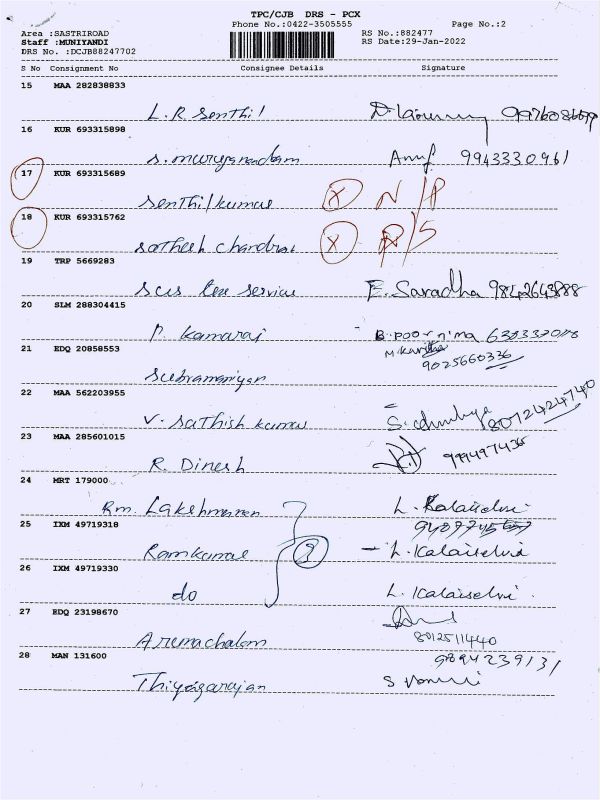 TPC/CJB DRS - PCX
Phone No.:0422-3505555 Page No.:2
Area :SASTRIROAD RS No.:882477
Staff :MUNIYANDI RS Date:29-Jan-2022
DRS No. :DCJB88247702
S No Consignment No Consignee Details Signature
15 MAA 282838833
L. R Senthil
16 KUR 693315898
S. Muruganadam 9943330961
17 KUR 693315689
Senthilkumar X N/P
18 KUR 693315762
Satheesh Chandran X /S
19 TRP 5669283
SCS Services E. Saradha
20 SLM 288304415
P. Kamaraj B. Poornima
21 EDQ 20858553 9025660336
Subramaniyan
22 MAA 562203955
V. Sathish Kumar 8012424740
23 MAA 285601015
R. Dinesh
24 MRT 179000
Rm. Lakshmanan L. Kalaiselvi
25 IXM 49719318
Ramkumar - L. Kalaiselvi
26 IXM 49719330
do L. Kalaiselvi
27 EDQ 23198670
Arumachalam 8012511440
28 MAN 131600 9894239131
Thiyagarajan